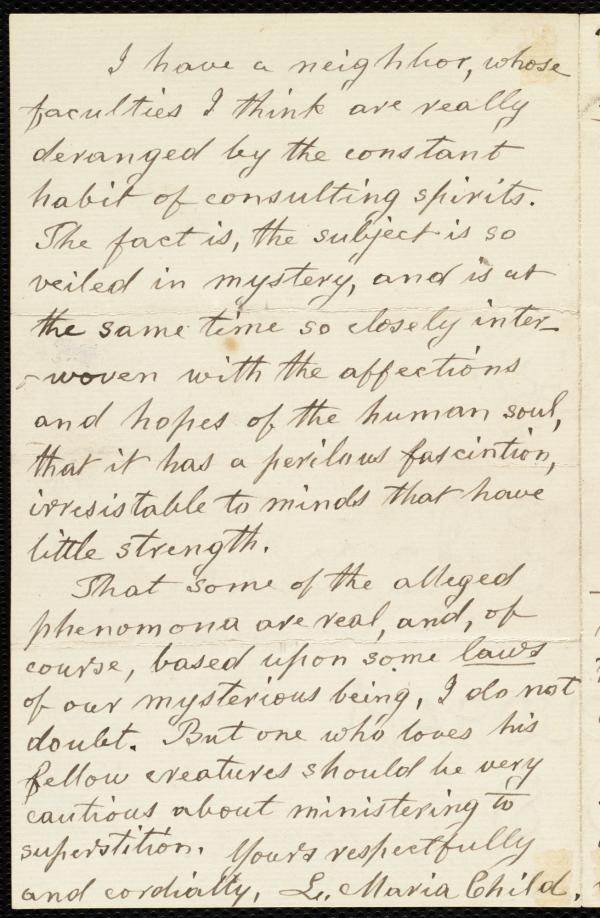 I have a neighbor, whose
faculties I think are really
deranged by the constant
habit of consulting spirits.
The fact is, the subject is so
veiled in mystery, and is at
the same time so closely inter-
-woven with the affections
and hopes of the human soul,
that it has a perilous fascintion,
irresistable to minds that have
little strength.
That some of the alleged
phenomona are real, and, of
course, based upon some laws
of our mysterious being, I do not
doubt. But one who loves his
fellow creatures should be very
cautious about ministering to
superstition. Yours respectfully
and cordially, L. Maria Child.